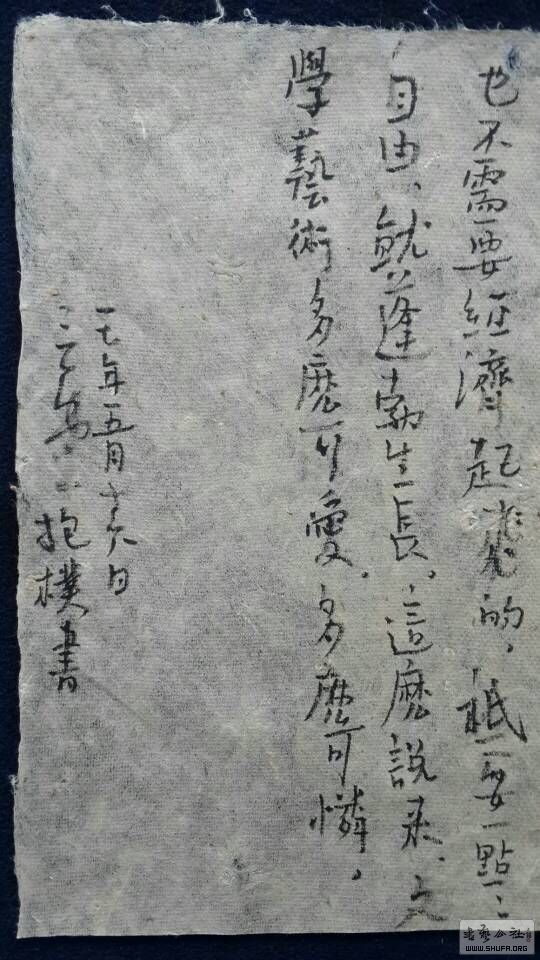 也不需要經濟起飛的，祇要一點點
自由，就蓬勃生長。這麼說來，文
學藝術多麼可愛，多麼可憐。
一七年五月十六日
抱樸書
書藝公社
WWW.SHUFA.ORG